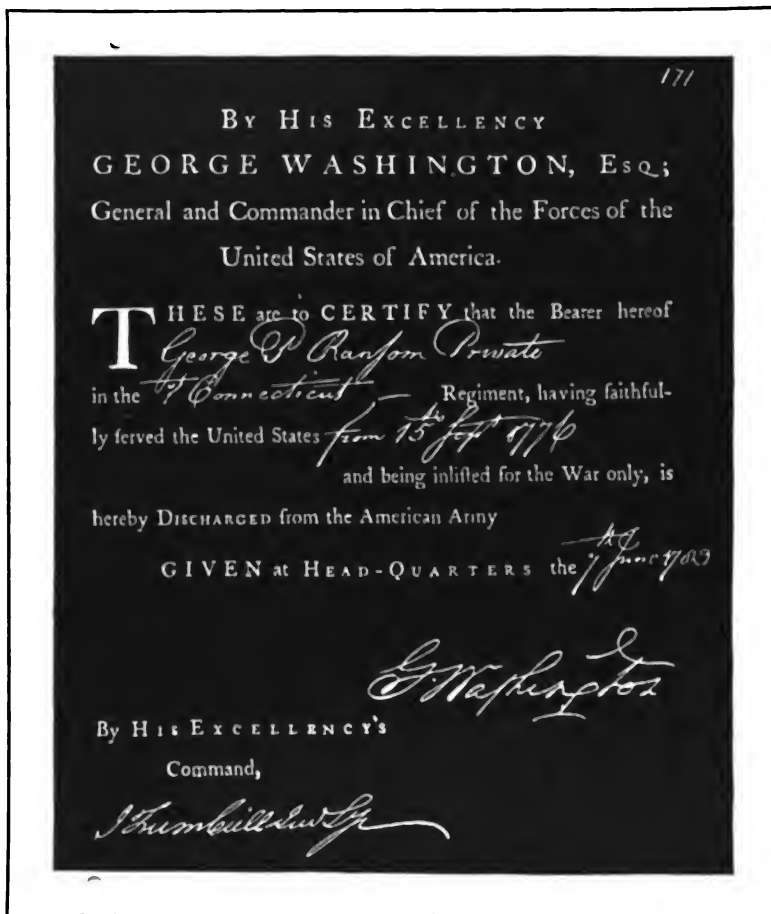 171
By His Excellency
GEORGE WASHINGTON, Esq;
General and Commander in Chief of the Forces of the
United States of America.
THESE are to CERTIFY that the Bearer hereof
George P Ranſom Private
in the Connecticut — Regiment, having faithful-
ly ſerved the United States from 15th Sept 1776
and being inliſted for the War only, is
hereby Discharged from the American Army
GIVEN at Head-Quarters the 7th June 1783
G:Waſhington
By His Excellency's
Command,
J Trumbull Jun Sy